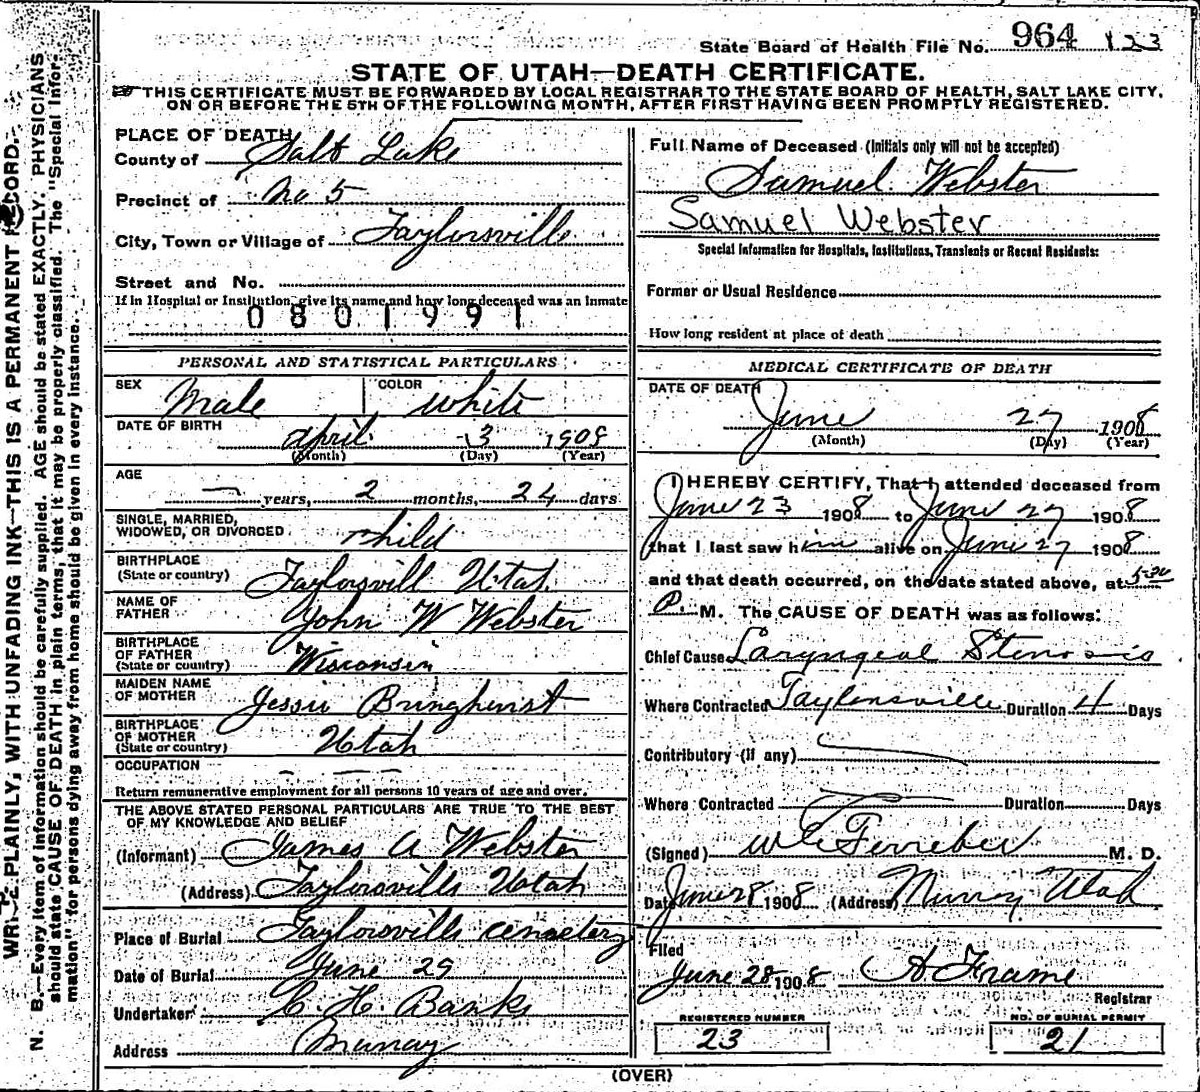 State Board of Health File No. 964 123
STATE OF UTAH—DEATH CERTIFICATE.
THIS CERTIFICATE MUST BE FORWARDED BY LOCAL REGISTRAR TO THE STATE BOARD OF HEALTH, SALT LAKE CITY,
ON OR BEFORE THE 5TH OF THE FOLLOWING MONTH, AFTER FIRST HAVING BEEN PROMPTLY REGISTERED.
PLACE OF DEATH
County of Salt Lake
Precinct of No 5
City, Town or Village of Taylorsville
Street and No.
If in Hospital or Institution, give its name and how long deceased was an inmate
0801991
PERSONAL AND STATISTICAL PARTICULARS
SEX Male COLOR White
DATE OF BIRTH April 3 1908
(Month) (Day) (Year)
AGE — years, 2 months, 24 days
SINGLE, MARRIED,
WIDOWED, OR DIVORCED child
BIRTHPLACE
(State or country) Taylorsvill Utah
NAME OF
FATHER John W Webster
BIRTHPLACE
OF FATHER
(State or country) Wisconsin
MAIDEN NAME
OF MOTHER Jessie Bringhurst
BIRTHPLACE
OF MOTHER
(State or country) Utah
OCCUPATION — — —
Return remunerative employment for all persons 10 years of age and over.
THE ABOVE STATED PERSONAL PARTICULARS ARE TRUE TO THE BEST
OF MY KNOWLEDGE AND BELIEF
(Informant) James A Webster
(Address) Taylorsville Utah
Place of Burial Taylorsville cemetery
Date of Burial June 29
Undertaker C. H. Banks
Address Murray
Full Name of Deceased (Initials only will not be accepted)
Samuel Webster
Samuel Webster
Special Information for Hospitals, Institutions, Transients or Recent Residents:
Former or Usual Residence
How long resident at place of death
MEDICAL CERTIFICATE OF DEATH
DATE OF DEATH
June 27 1908
(Month) (Day) (Year)
I HEREBY CERTIFY, That I attended deceased from
June 23 1908 to June 27 1908
that I last saw him alive on June 27 1908
and that death occurred, on the date stated above, at 5-30
P. M. The CAUSE OF DEATH was as follows:
Chief Cause Laryngeal Stenosis
Where Contracted Taylorsville Duration 4 Days
Contributory (if any)
Where Contracted Duration Days
(Signed) M. D.
Date June 28 1908 (Address) Murray Utah
Filed
June 28 1908 A Frame
Registrar
REGISTERED NUMBER
23
NO. OF BURIAL PERMIT
21
(OVER)
WRITE PLAINLY, WITH UNFADING INK—THIS IS A PERMANENT RECORD.
N. B.—Every item of information should be carefully supplied. AGE should be stated EXACTLY. PHYSICIANS
should state CAUSE OF DEATH in plain terms, that it may be properly classified. The "Special Infor-
mation" for persons dying away from home should be given in every instance.